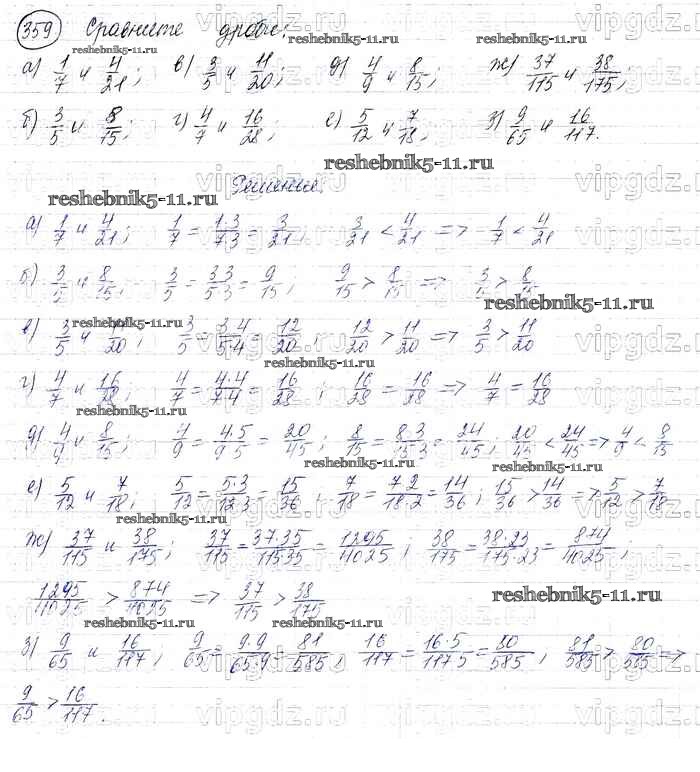 359 Сравните дроби:
reshebnik5-11.ru reshebnik5-11.ru
а) 1/7 и 4/21; в) 3/5 и 11/20; д) 4/9 и 8/15; ж) 37/115 и 38/175;
б) 3/5 и 8/15; г) 4/7 и 16/28; е) 5/12 и 7/18; з) 9/65 и 16/117.
reshebnik5-11.ru
Решение.
reshebnik5-11.ru
а) 1/7 и 4/21; 1/7 = 1·3/7·3 = 3/21, 3/21 < 4/21 => 1/7 < 4/21
б) 3/5 и 8/15, 3/5 = 3·3/5·3 = 9/15; 9/15 > 8/15 => 3/5 > 8/15
reshebnik5-11.ru
в) 3/5 и 11/20, 3/5 = 3·4/5·4 = 12/20, 12/20 > 11/20 => 3/5 > 11/20
reshebnik5-11.ru
reshebnik5-11.ru
г) 4/7 и 16/28, 4/7 = 4·4/7·4 = 16/28; 16/28 = 16/28 => 4/7 = 16/28
reshebnik5-11.ru
д) 4/9 и 8/15; 4/9 = 4·5/9·5 = 20/45; 8/15 = 8·3/15·3 = 24/45; 20/45 < 24/45 => 4/9 < 8/15
reshebnik5-11.ru reshebnik5-11.ru
е) 5/12 и 7/18; 5/12 = 5·3/12·3 = 15/36, 7/18 = 7·2/18·2 = 14/36; 15/36 > 14/36 => 5/12 > 7/18
reshebnik5-11.ru
ж) 37/115 и 38/175; 37/115 = 37·35/115·35 = 1295/4025; 38/175 = 38·23/175·23 = 874/4025;
1295/4025 > 874/4025 => 37/115 > 38/175
reshebnik5-11.ru
reshebnik5-11.ru reshebnik5-11.ru
з) 9/65 и 16/117, 9/65 = 9·9/65·9 = 81/585, 16/117 = 16·5/117·5 = 80/585, 81/585 > 80/585 =>
9/65 > 16/117.
vipgdz.ru